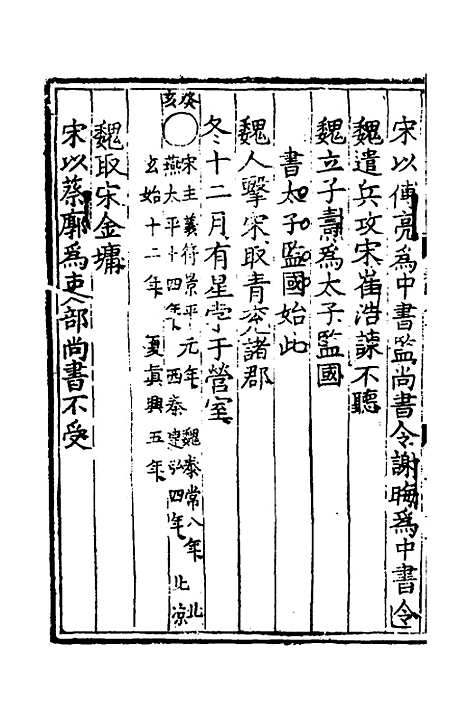 宋以傅亮為中書監尚書令謝晦為中書令
魏遣兵攻宋崔浩諫不聽
魏立子燾為太子監國
書太子監國始此
魏人擊宋取青兗諸郡
冬十二月有星孛于營室
癸亥
宋主義符景平元年 魏泰常八年 北
燕太平十四年 西秦建弘四年 北涼
玄始十二年 夏真興五年
魏取宋金墉
宋以蔡廓為吏部尚書不受